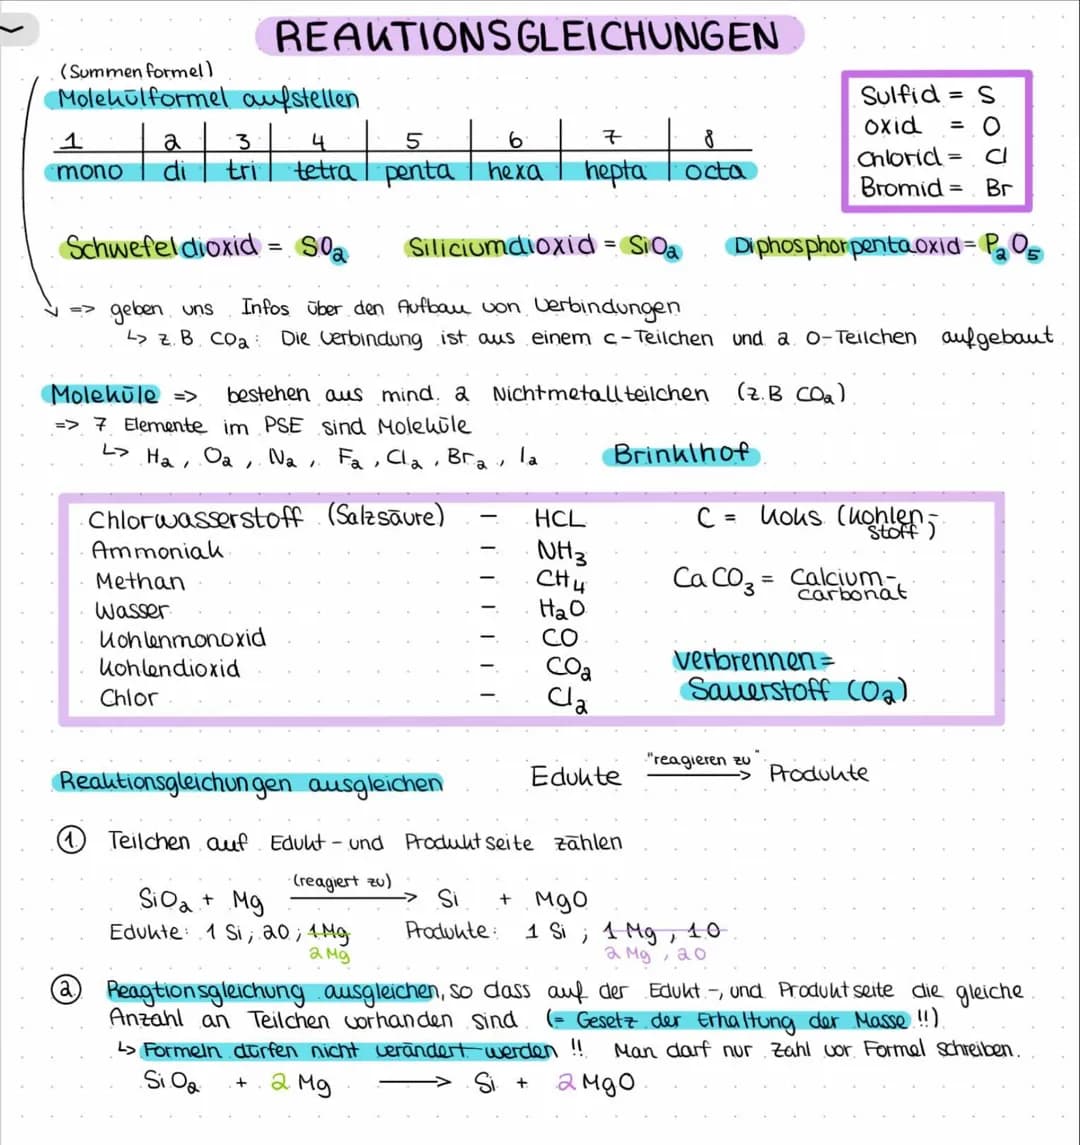 REAKTIONSGLEICHUNGEN
(Summenformel)
Molekülformel aufstellen
1 2 3 4 5 6 7 8
mono di tri tetra penta hexa hepta octa
Sulfid = S
oxid = O
Chlorid = Cl
Bromid = Br
Schwefeldioxid = SO₂ Siliciumdioxid = SiO₂ Diphosphorpentaoxid = P₂O₅
=> geben uns Infos über den Aufbau von Verbindungen
↳ z.B. CO₂: Die Verbindung ist aus einem C-Teilchen und 2 O-Teilchen aufgebaut
Moleküle => bestehen aus mind. 2 Nichtmetallteilchen (z.B CO₂)
=> 7 Elemente im PSE sind Moleküle
↳ H₂, O₂, N₂, F₂, Cl₂, Br₂, I₂ Brinklhof
Chlorwasserstoff (Salzsäure) - HCL
Ammoniak - NH₃
Methan - CH₄
Wasser - H₂O
Kohlenmonoxid - CO
Kohlendioxid - CO₂
Chlor - Cl₂
C = Koks (Kohlen-
stoff)
CaCO₃ = Calcium-
carbonat
verbrennen =
Sauerstoff (O₂)
Reaktionsgleichungen ausgleichen Edukte "reagieren zu" → Produkte
① Teilchen auf Edukt- und Produktseite zählen
SiO₂ + Mg (reagiert zu) → Si + MgO
Edukte: 1 Si; 2O; 1Mg Produkte: 1 Si; 1 Mg, 1O
2 Mg 2 Mg, 2O
② Reagtionsgleichung ausgleichen, so dass auf der Edukt-, und Produktseite die gleiche
Anzahl an Teilchen vorhanden sind (= Gesetz der Erhaltung der Masse!!)
↳ Formeln dürfen nicht verändert werden!! Man darf nur Zahl vor Formel schreiben.
SiO₂ + 2 Mg → Si + 2 MgO